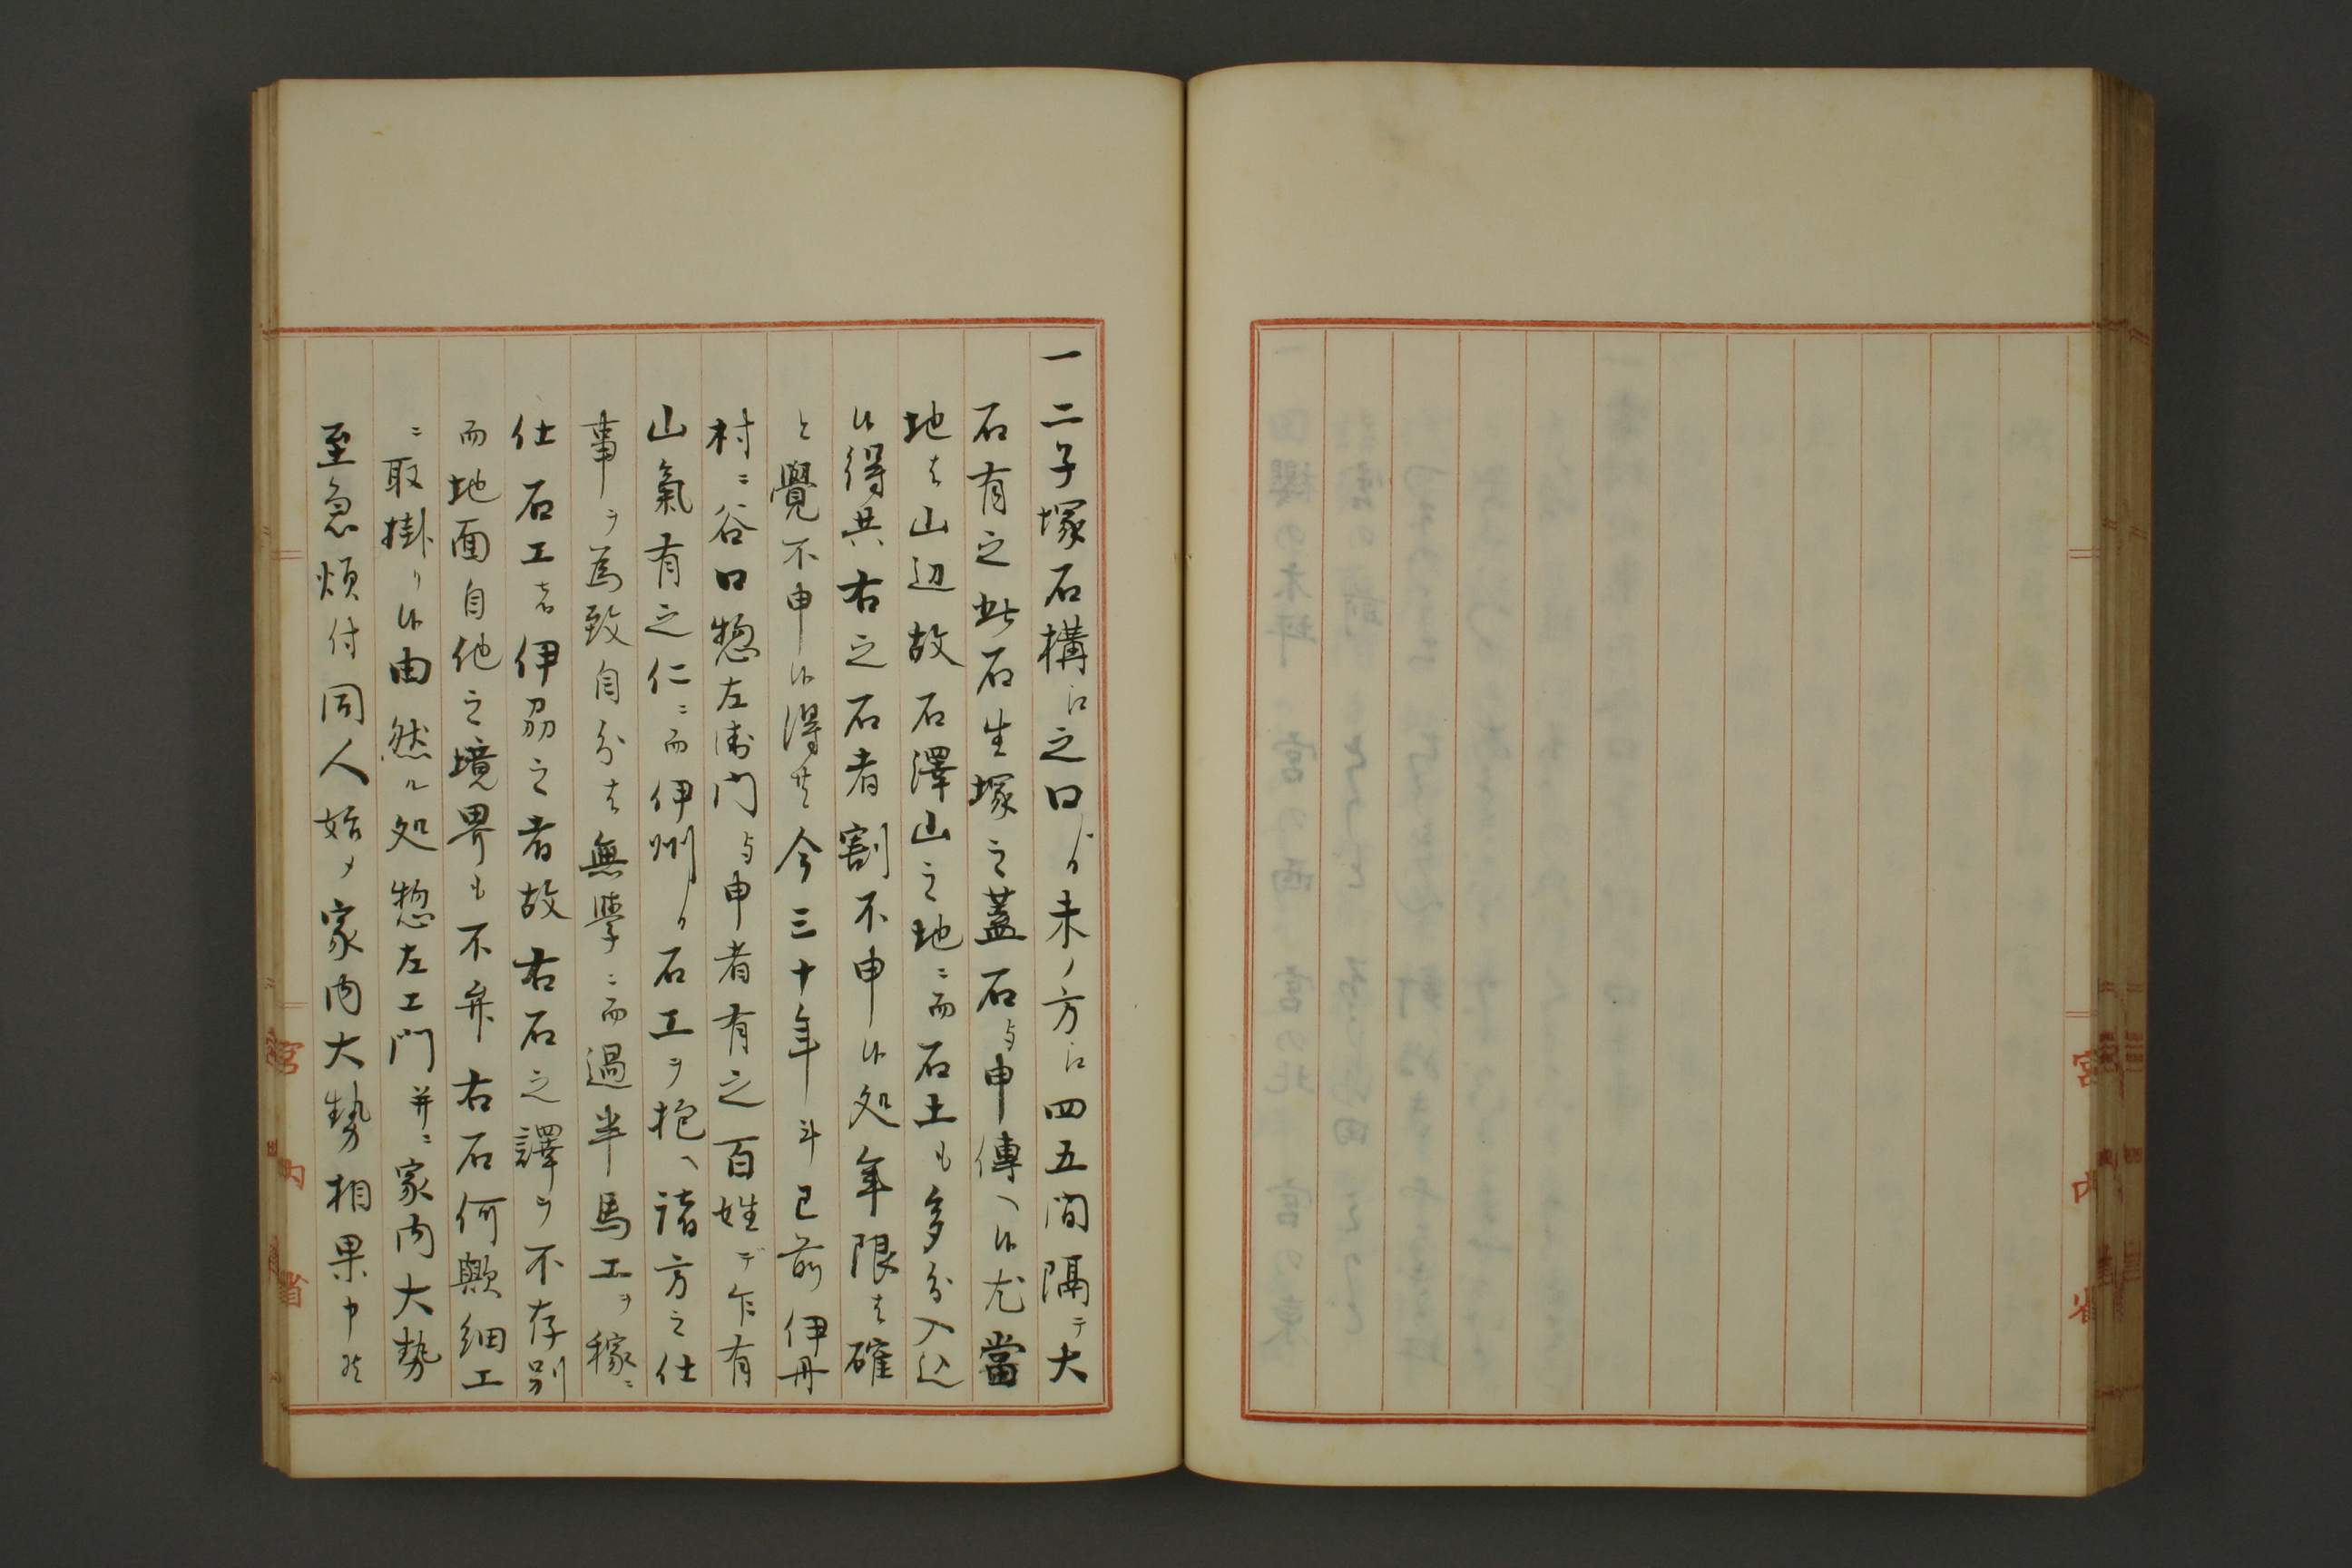 一二子塚石構江之口ゟ未ノ方江四五間隔テ大
石有之此石生塚之蓋石与申傳ヘ候尤當
地者山辺故石澤山之地ニ而石土も多分入込
候得共右之石者割不申候処年限者確
と覺不申候得共今三十年斗已前伊丹
村ニ谷口惣左衛門与申者有之百姓乍有
山氣有之仁ニ而伊州ゟ石工ヲ抱ヘ諸方之仕
事ヲ為致自分者無學ニ而過半馬工ヲ稼ニ
仕石工者伊刕之者故右石之譯ヲ不存別
而地面自他之境界も不弁右石何歟細工
ニ取掛リ候由然ル処惣左エ門并ニ家内大勢
至急煩付同人始メ家内大勢相果申候
宮内省
宮内省